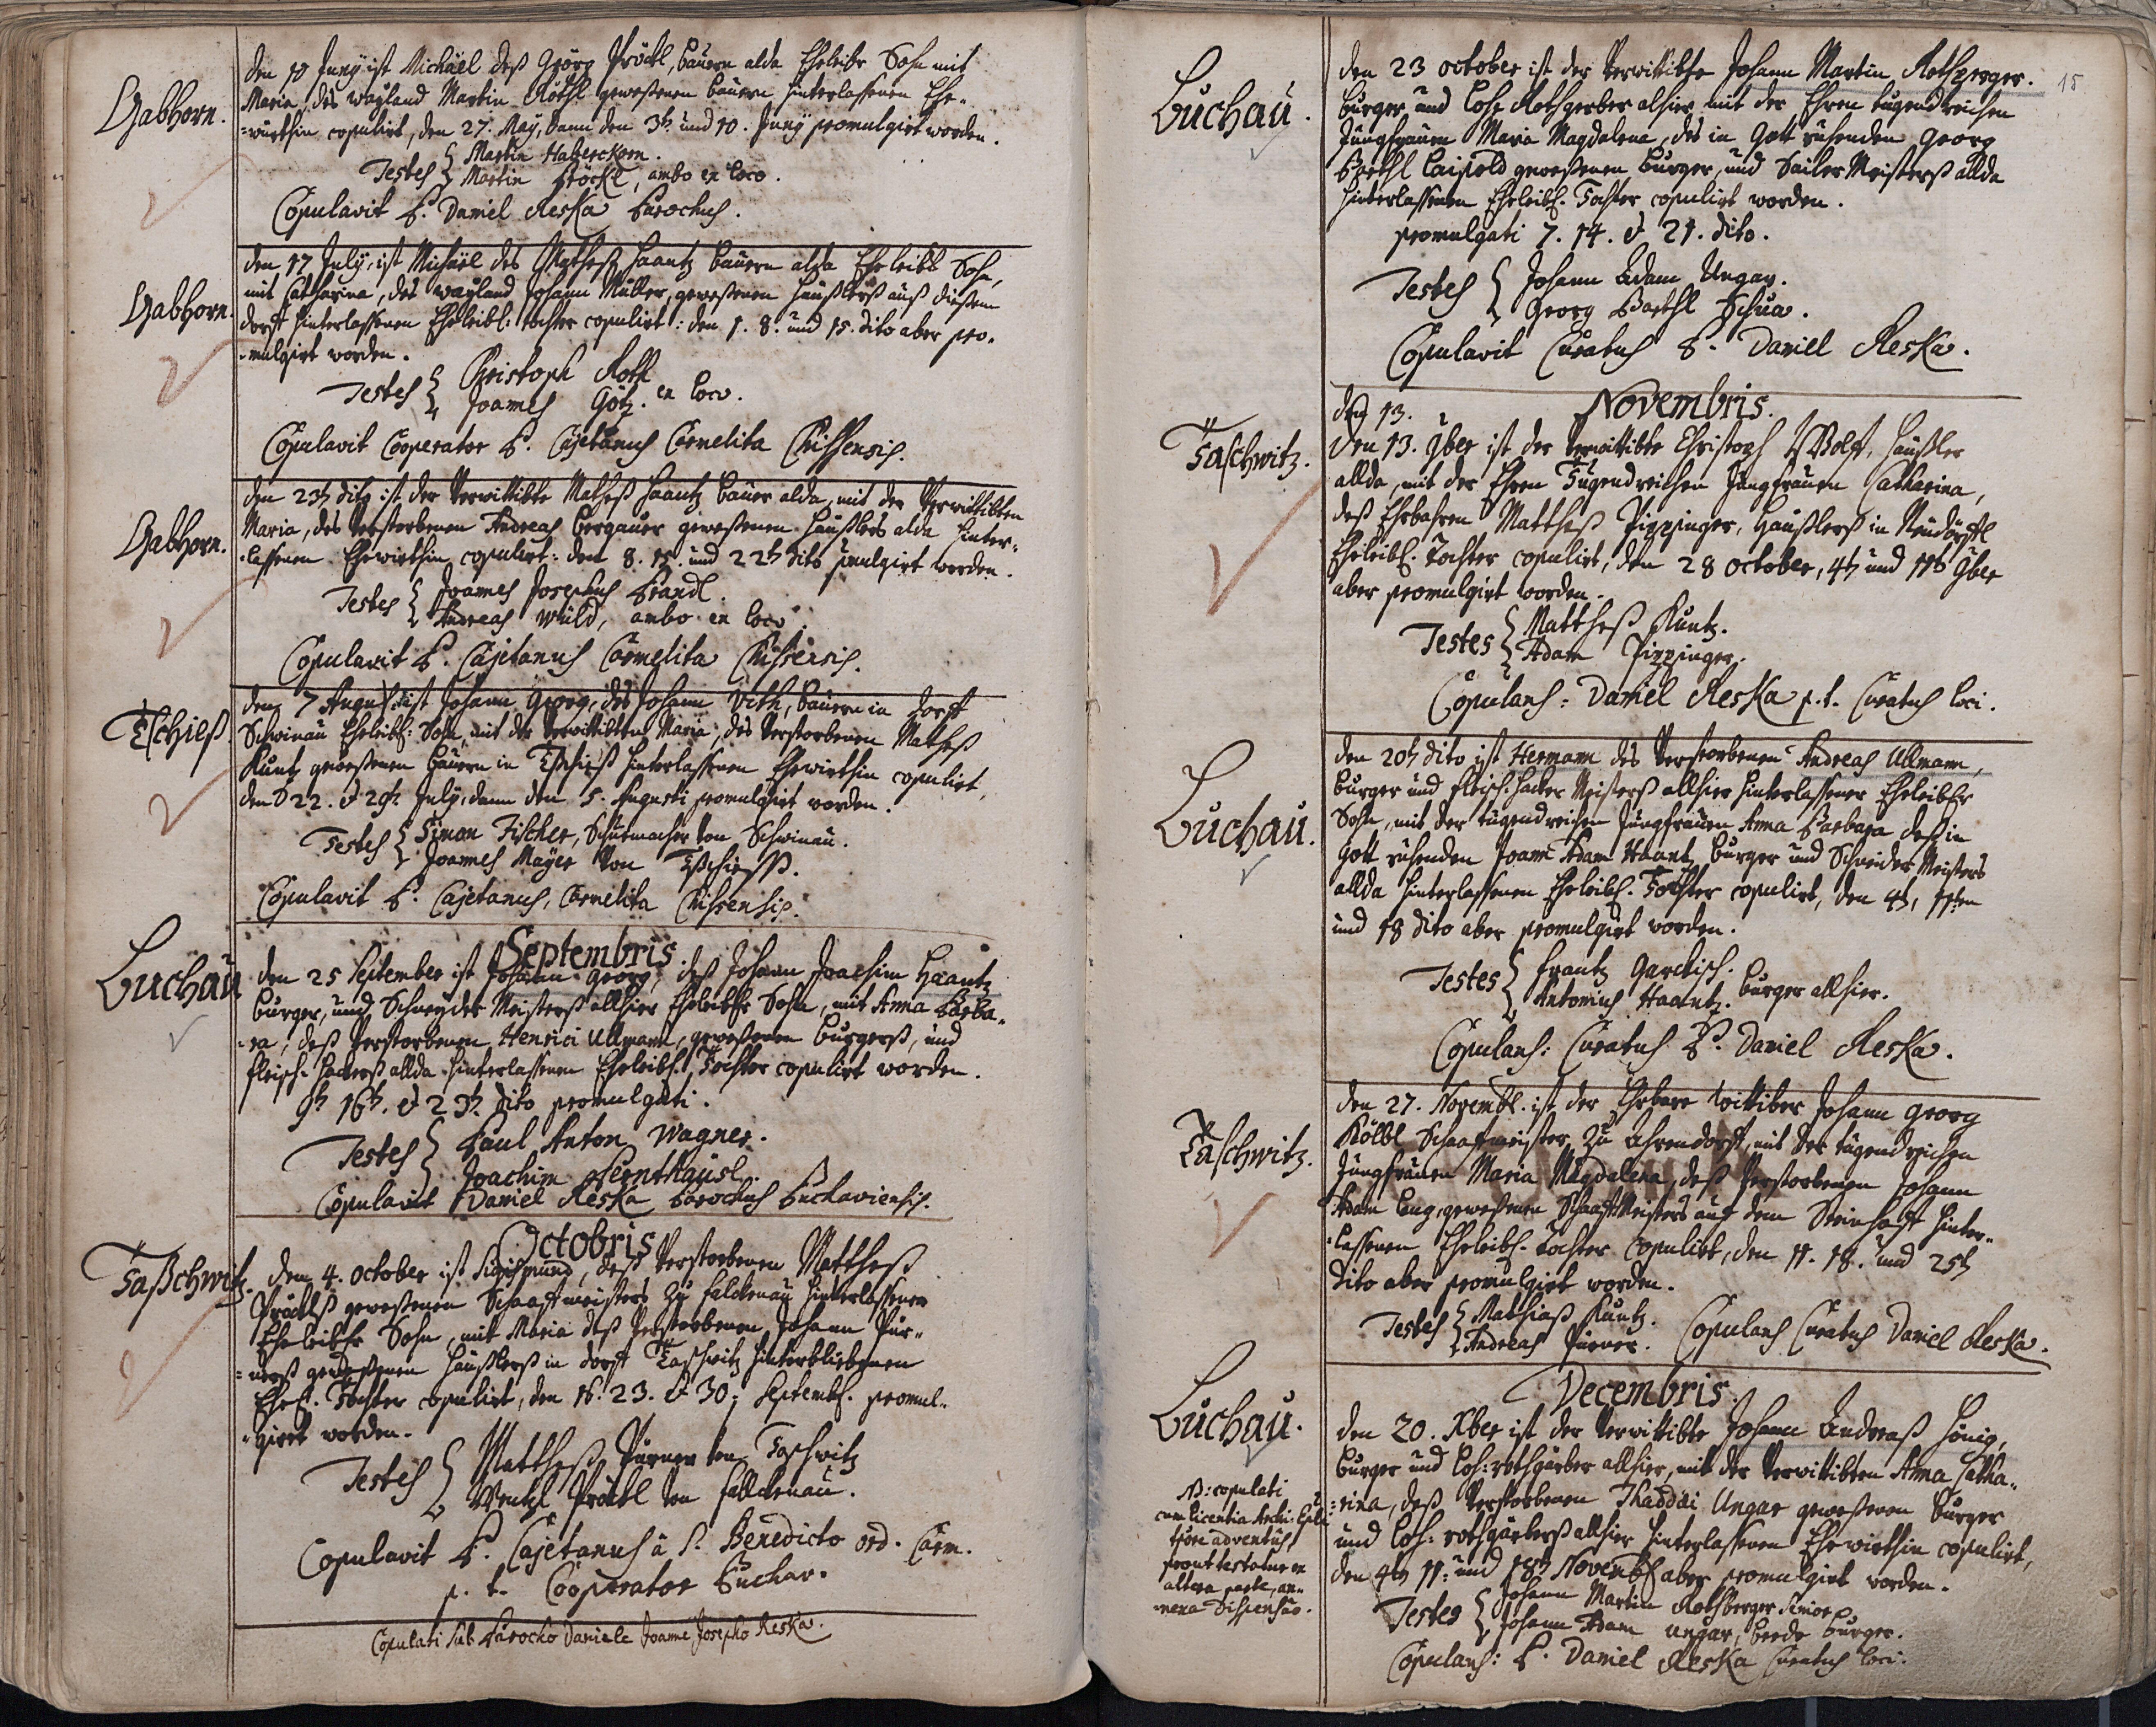 Gabhorn.
den 10 Junÿ ist Michäel deß Geörg Pröckl, Bauern alda Eheleibr Sohn mit
Maria, des waÿland Martin Röthl geweßenen Bauern hinterlaßenen Ehe-
=würthin copulirt, den 27. Maÿ, dann den 3t. und 10. Junÿ promulgirt worden.
Testes { Martin Haberckorn.
Martin Pröckl, ambo ex loco.
Copulavit P. Daniel Reska Parochus.
Gabhorn.
den 17 Julÿ, ist Michäel des Matheß Haantz Bauern alda Eheleibl Sohn,
mit Catharina, des waÿland Johann Müller, geweßenen Haußlers auß dießem
dorff hinterlaßenen Eheleibl: tochter copulirt: den 1. 8. und 15. dito aber pro-
-mulgirt worden.
Testes { Christoph Roth
Joannes Götz. ex loco.
Copulavit Cooperator P. Cajetanus Carmelita Chissensis.
Gabhorn.
den 23t dito ist der Verwittibte Matheß Haantz Bauer alda, mit der Verwittibten
Maria, des Verstorbenen Andreas Bergauer geweßenen Haußlers alda hinter-
-laßenen Ehewirthin copulirt: den 8. 15. und 22t dito pmulgirt worden.
Testes { Joannes Josephus Brandl.
Andreas Wüld, ambo ex loco.
Copulavit P. Cajetanus Carmelita Chissensis.
Tschieß.
den 7 Augusti ist Johann Georg, des Johann Veth, Bauern in dorff
Schwinau Eheleibl: Sohn, mit der Verwittibten Maria, des Verstorbenen Matheß
Kuntz geweßenen Bauern in Tschieß hinterlaßenen Ehewirthin copulirt,
den 22. & 29t. Julÿ, dann den 5. Augusti promulgirt worden.
Testes { Simon Fischer, Schumacher von Schwinau.
Joannes Maÿer von Tschießß.
Copulavit P. Cajetanus, Carmelita Chissensis.
Septembris
Luchau
den 25 September ist Johann Georg, deß Johann Joachim Haantz
Burger, und Schneyder Meisterß allhier Eheleibr Sohn, mit Anna Barba-
-ra, deß Verstorbenen Henrici Ullmann, geweßenen Burgerß, und
fleisch-hackerß allda hinterlaßenen Eheleibl. Tochter copulirt worden.
9t 16t. & 23t. dito promulgati.
Testes { Paul Anton Wagner.
Joachim Fernthäusl.
Copulavit Daniel Reska Parochus Luchaviensis.
Octobris
Taßchwitz.
den 4. October ist Sigismund, deß Verstorbenen Mattheß
Pröcklß geweßenen Schaaffmeisters zu falckenau hinterlaßener
Eheleibr Sohn, mit Maria deß Verstorbenen Johann Pür-
=nerß geweßenen Haußlerß in dorff Taschwitz hinterbliebenen
Ehel. Tochter copulirt, den 16. 23. & 30: Septemb. promul-
-girt worden.
Testes { Mattheß Pürner von Taschwitz
Wentzl Pröckl von falckenau.
Copulavit P. Cajetanus à S. Benedicto ord. Carm.
p. t. Cooperator Luchav.
Copulati sub Parocho Daniele Joanne Josepho Reska.
15
Luchau.
den 23 october ist der Verwittibte Johann Martin Rothperger.
burger und Loh- Rothgerber alhier mit der Ehren tugendreichen
Jungfrauen Maria Magdalena, des in Gott ruhenden Georg
Barthl Laipold geweßenen Burger, und Sailer Meisterß allda
hinterlaßenen Eheleibl. Tochter copulirt worden.
promulgati 7. 14. & 21. dito.
Testes { Johann Adam Ungar.
Georg Barthl Schua.
Copulavit Curatus P. Daniel Reska.
Novembris.
den 13.
Taschwitz.
den 13. 9ber ist der Verwittibte Christoph Wolff, Haußler
allda, mit der Ehren Tugendreichen Jungfrauen Catharina,
deß Ehrbahren Mattheß Pippinger, Haußlerß in Neudörffl
Eheleibl. Tochter copulirt, den 28 october, 4t und 11t 9ber
aber promulgirt worden.
Testes { Mattheß Kuntz.
Adam Pippinger.
Copulans: Daniel Reska p.t. Curatus loci.
Luchau.
den 20t dito ist Hermann des Verstorbenen Andreas Ullmann,
burger und fleisch-hacker Meisterß allhier hinterlaßener Eheleibr
Sohn, mit der tugendreichen Jungfrauen Anna Barbara deß in
Gott ruhenden Joann Adam Haant, burger und Schneider Meisters
allda hinterlaßenen Eheleibl. Tochter copulirt, den 4t, 11ten
und 18 dito aber promulgirt worden.
Testes { Frantz Garckisch.
Antonius Haantz. burger allhier.
Copulans: Curatus P. Daniel Reska.
Taschwitz.
den 27. Novembl. ist der Ehrbare Wittiber Johann Georg
Kölbl Schaafmeister zu Ahrendorff, mit der tugendreichen
Jungfrauen Maria Magdalena, deß Verstorbenen Johann
Adam Lang, geweßenen Schaaff Meisters auf dem Steinhoff hinter-
-laßenen Eheleibl. Tochter copulirt, den 11. 18. und 25t
dito aber promulgirt worden.
Testes { Mathiaß Kuntz.
Andreas Pürner. Copulans Curatus Daniel Reska.
Decembris.
Luchau.
den 20. Xber ist der Verwittibte Johann Andreaß Hönig,
burger und Loh: rothgärber allhier, mit der Verwittibten Anna Catha-
-rina, deß Verstorbenen Thaddäi Ungar geweßenen burger
und Loh: rothgärberß allhier hinterlaßenen Ehewirthin copulirt,
den 4t 11: und 18t Novemb aber promulgirt worden.
NB: copulati
cum licentia Archi-Epli
tpore adventûs
prout testatur ex
altera parte, an-
-nexa Dispensao.
Testes { Johann Martin Rothberger Senior
Johann Adam Ungar, beede burger.
Copulans: P. Daniel Reska Curatus loci.